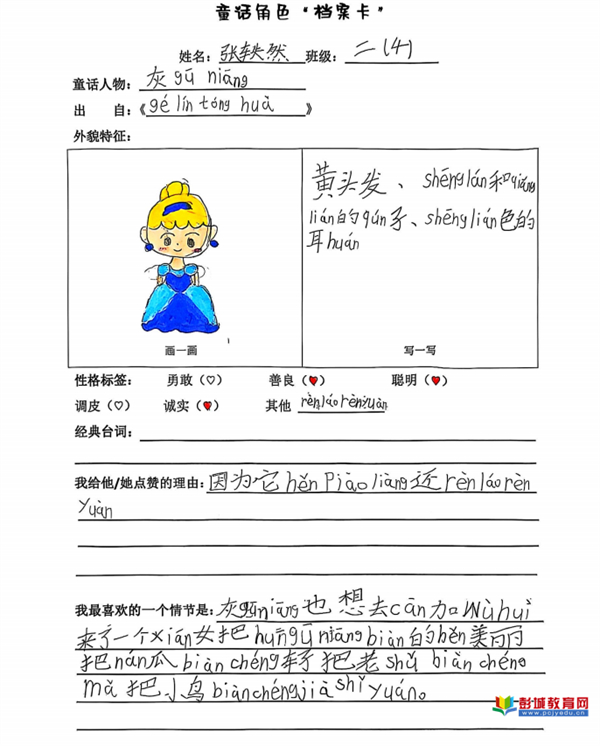 童话角色“档案卡”
姓名：张轶然 班级：二（4）
童话人物：灰gū niāng
出 自：《gé lín tóng huà》
外貌特征：
黄头发、shēnglán和qiáng
lián的qún子、shēnglián色的
耳huán
画一画
写一写
性格标签： 勇敢（♡） 善良（♥） 聪明（♥）
调皮（♡） 诚实（♥） 其他 rènláorènyuàn
经典台词：
我给他/她点赞的理由：因为它hěn Piàoliàng还rènláorèn
yuàn
我最喜欢的一个情节是：灰gūniāng也想去cān加Wǔhuì
来了一个xiān女把huīgūniāng biàn的hěn美丽
把nán瓜biàn chéng车子把老shǔ biàn chéng
mǎ把小鸟biànchéngjiàshǐyuán。
彭城教育网
www.pcjyedu.cn